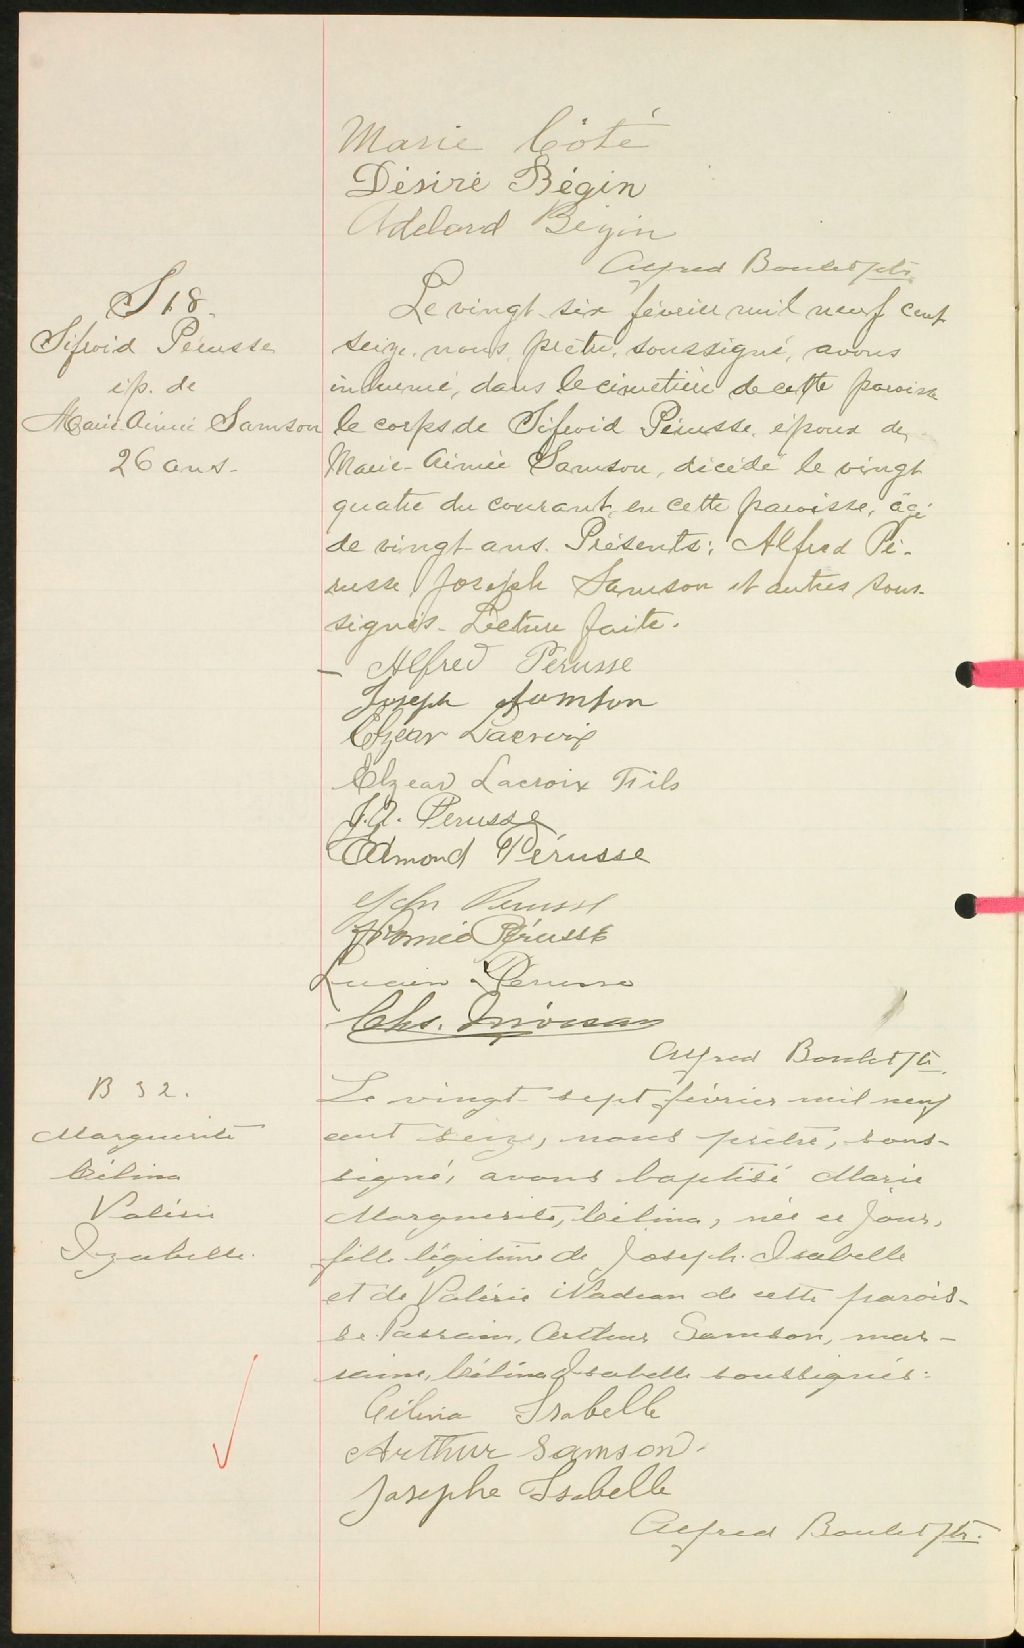 Marie Côté
Désiré Bégin
Adelard Bégin
Alfred Boulet ptr.
S 18.
Sifroid Pérusse
ép. de
Marie-Aimée Samson
26 ans.
Le vingt-six février mil neuf cent
seize, nous, prêtre, soussigné, avons
inhumé, dans le cimetière de cette paroisse
le corps de Sifroid Pérusse, époux de
Marie-Aimée Samson, décédé le vingt
quatre du courant, en cette paroisse, âgé
de vingt ans. Présents: Alfred Pé-
russe Joseph Samson et autres sous-
signés. Lecture faite.
Alfred Pérusse
Joseph Samson
Elzear Lacroix
Elzear Lacroix Fils
J.A. Perusse
Edmond Pérusse
Perusse
Roméo Pérusse
Lucien Perusse
Chs.
Alfred Boulet ptr.
B 32.
Marguerite
Célina
Valérie
Izabelle.
Le vingt-sept février mil neuf
cent seize, nous prêtre, sous-
signé, avons baptisé Marie
Marguerite, Célina, née ce jour,
fille légitime de Joseph Isabelle
et de Valérie Nadeau de cette parois-
se. Parrain, Arthur Samson, mar-
raine, Célina Isabelle soussignés:
Célina Isabelle
Arthur Samson.
Josephe Isabelle
Alfred Boulet ptr.